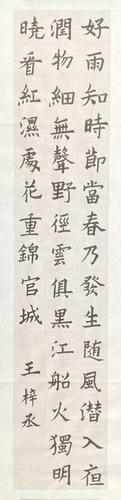 好雨知時節當春乃發生随風潛入夜
潤物細無聲野徑雲俱黒江船火獨明
曉看紅濕處花重錦官城
王梓丞